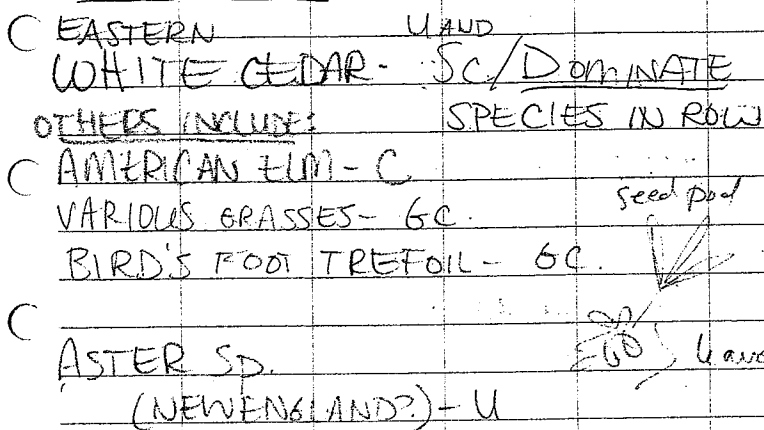 EASTERN U AND
WHITE CEDAR - SC/DOMINATE
OTHERS INCLUDE: SPECIES IN ROW
AMERICAN ELM - C
VARIOUS GRASSES - GC.
seed pod
BIRD'S FOOT TREFOIL - GC.
ASTER SP.
(NEW ENGLAND?) - U